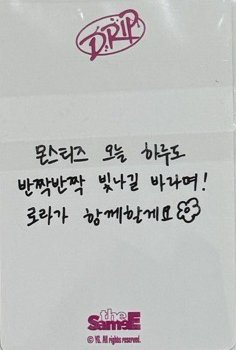 DRIP
몬스티즈 오늘 하루도
반짝반짝 빛나길 바라며!
로라가 함께할게요
the
SameE
© YG. All rights reserved.